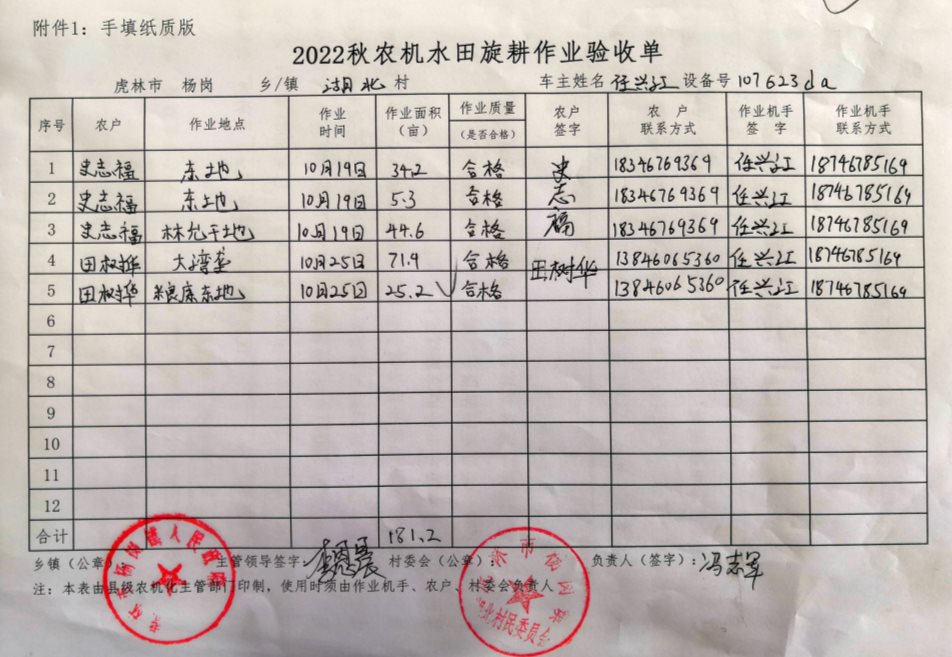 附件1：手填纸质版
2022秋农机水田旋耕作业验收单
虎林市 杨岗 乡/镇 湖北 村 车主姓名 任兴江 设备号 107623da
序号 农户 作业地点 作业时间 作业面积（亩） 作业质量（是否合格） 农户签字 农户联系方式 作业机手签字 作业机手联系方式
1 史志福 东地 10月19日 34.2 合格 史志福 18346769369 任兴江 18746785169
2 史志福 东地 10月19日 5.3 合格 18346769369 任兴江 18746785169
3 史志福 林允干地 10月19日 44.6 合格 18346769369 任兴江 18746785169
4 田树华 大湾垄 10月25日 71.9 合格 田树华 13846065360 任兴江 18746785169
5 田树华 粮库东地 10月25日 25.2 合格 13846065360 任兴江 18746785169
6
7
8
9
10
11
12
合计 181.2
乡镇（公章） 主管领导签字 村委会（公章）： 负责人（签字）：冯志军
注：本表由县级农机化主管部门印制，使用时须由作业机手、农户、村委会负责人